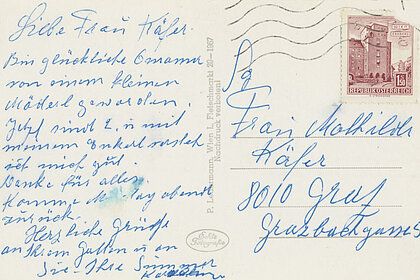 Liebe Frau Käfer.
Bin glückliche Omama
von einem kleinen
Mäderl geworden.
Jetzt sind 2, u. mit
meinem Enkerl versteh
ich mich gut.
Danke für alles
Komme abend
zurück.
Herzliche Grüße
an Ihren Gatten u. an
Sie Ihre
P. Ledermann, Wien I., Fleischmarkt 20 - 1967
Nachdruck verboten!
REPUBLIK ÖSTERREICH
Frau Mathilde
Käfer
8010 Graz
Grazbachgasse